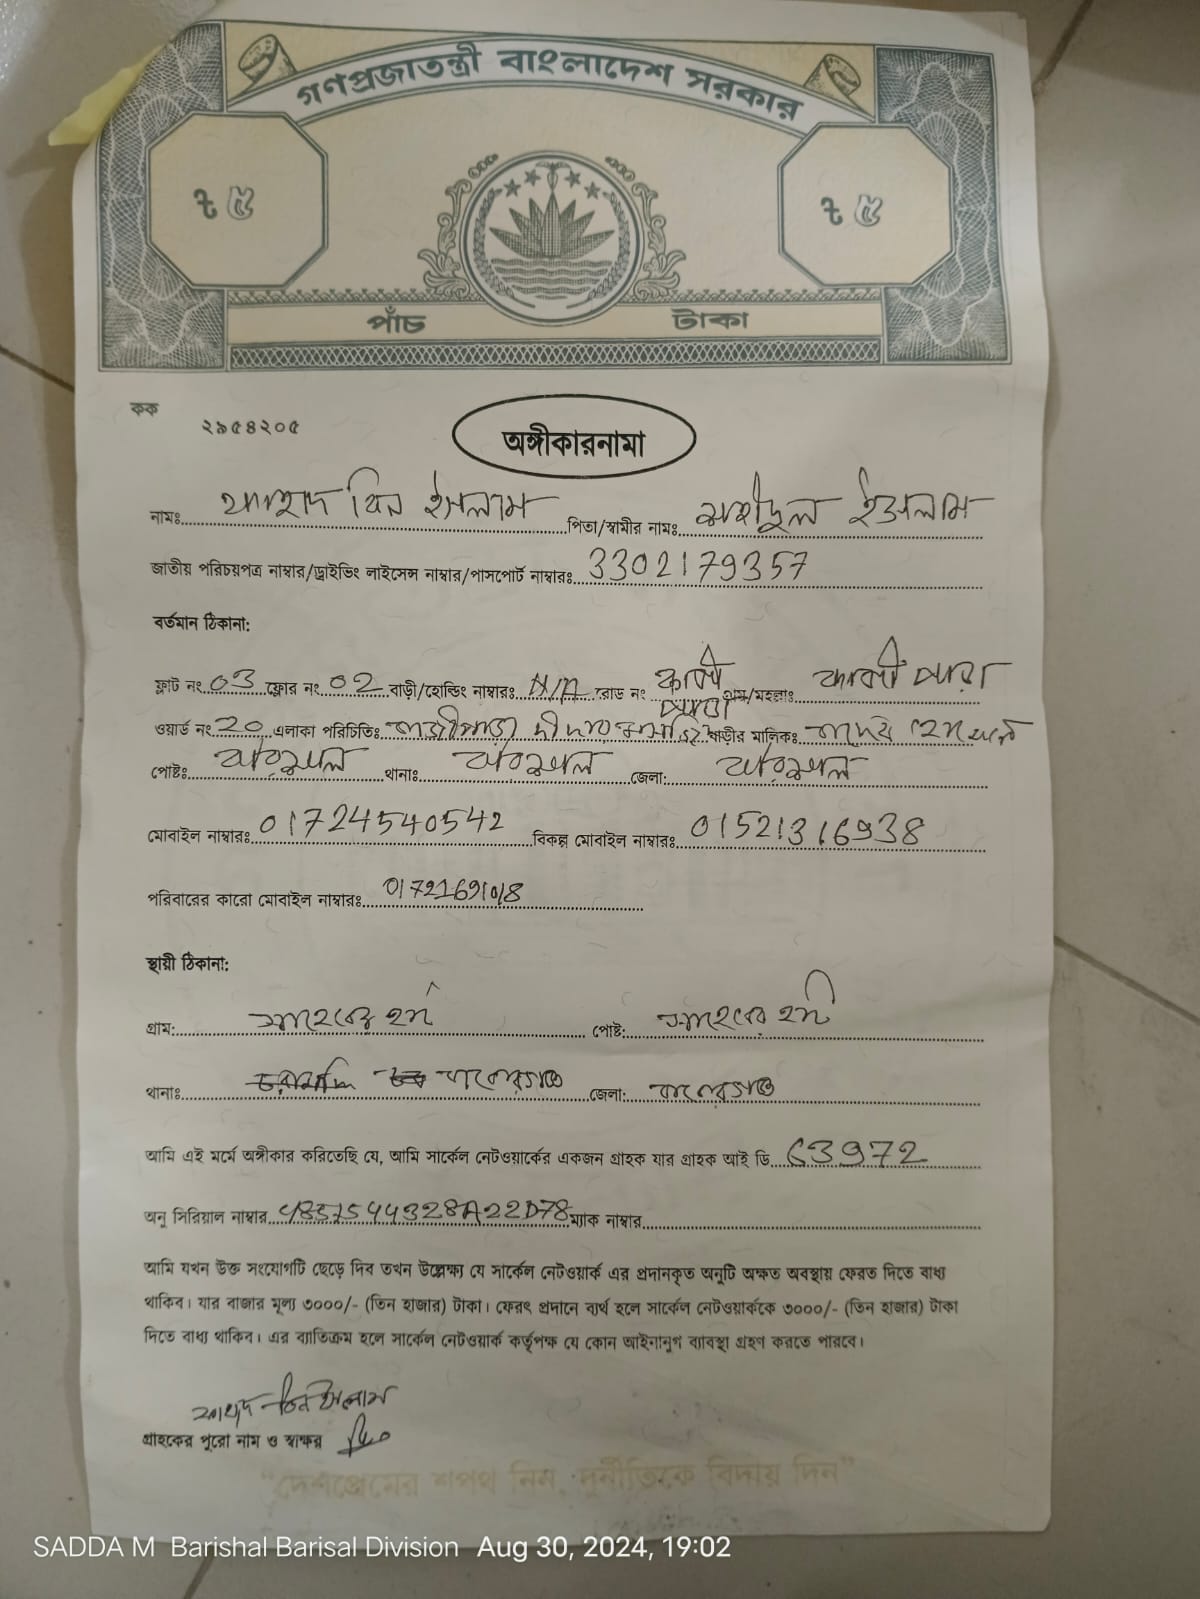 গণপ্রজাতন্ত্রী বাংলাদেশ সরকার
৳ ৫ ৳ ৫
পাঁচ টাকা
কক
২৯৫৪২০৫
অঙ্গীকারনামা
নামঃ ফাহাদ বিন ইসলাম পিতা/স্বামীর নামঃ শহীদুল ইসলাম
জাতীয় পরিচয়পত্র নাম্বার/ড্রাইভিং লাইসেন্স নাম্বার/পাসপোর্ট নাম্বারঃ 3302179357
বর্তমান ঠিকানা:
ফ্লাট নং 03 ফ্লোর নং 02 বাড়ী/হোল্ডিং নাম্বারঃ N/A রোড নং কাজী পাড়া গ্রাম/মহল্লাঃ কাজী পাড়া
ওয়ার্ড নং 20 এলাকা পরিচিতিঃ কাজীপাড়া বাড়ীর মালিকঃ
পোষ্টঃ বরিশাল থানাঃ বরিশাল জেলা: বরিশাল
মোবাইল নাম্বারঃ 01724540542 বিকল্প মোবাইল নাম্বারঃ 01521316938
পরিবারের কারো মোবাইল নাম্বারঃ 01721691018
স্থায়ী ঠিকানা:
গ্রাম: সাহেবের হাট পোষ্ট: সাহেবের হাট
থানাঃ বাকেরগঞ্জ জেলা: বাকেরগঞ্জ
আমি এই মর্মে অঙ্গীকার করিতেছি যে, আমি সার্কেল নেটওয়ার্কের একজন গ্রাহক যার গ্রাহক আই ডি C3972
অনু সিরিয়াল নাম্বার 4857544328A22D78 ম্যাক নাম্বার
আমি যখন উক্ত সংযোগটি ছেড়ে দিব তখন উল্লেক্ষ্য যে সার্কেল নেটওয়ার্ক এর প্রদানকৃত অনুটি অক্ষত অবস্থায় ফেরত দিতে বাধ্য
থাকিব। যার বাজার মূল্য ৩০০০/- (তিন হাজার) টাকা। ফেরৎ প্রদানে ব্যর্থ হলে সার্কেল নেটওয়ার্ককে ৩০০০/- (তিন হাজার) টাকা
দিতে বাধ্য থাকিব। এর ব্যাতিক্রম হলে সার্কেল নেটওয়ার্ক কর্তৃপক্ষ যে কোন আইনানুগ ব্যাবস্থা গ্রহণ করতে পারবে।
ফাহাদ বিন ইসলাম
গ্রাহকের পুরো নাম ও স্বাক্ষর
"দেশপ্রেমের শপথ নিন, দুর্নীতিকে বিদায় দিন"
SADDA M Barishal Barisal Division Aug 30, 2024, 19:02